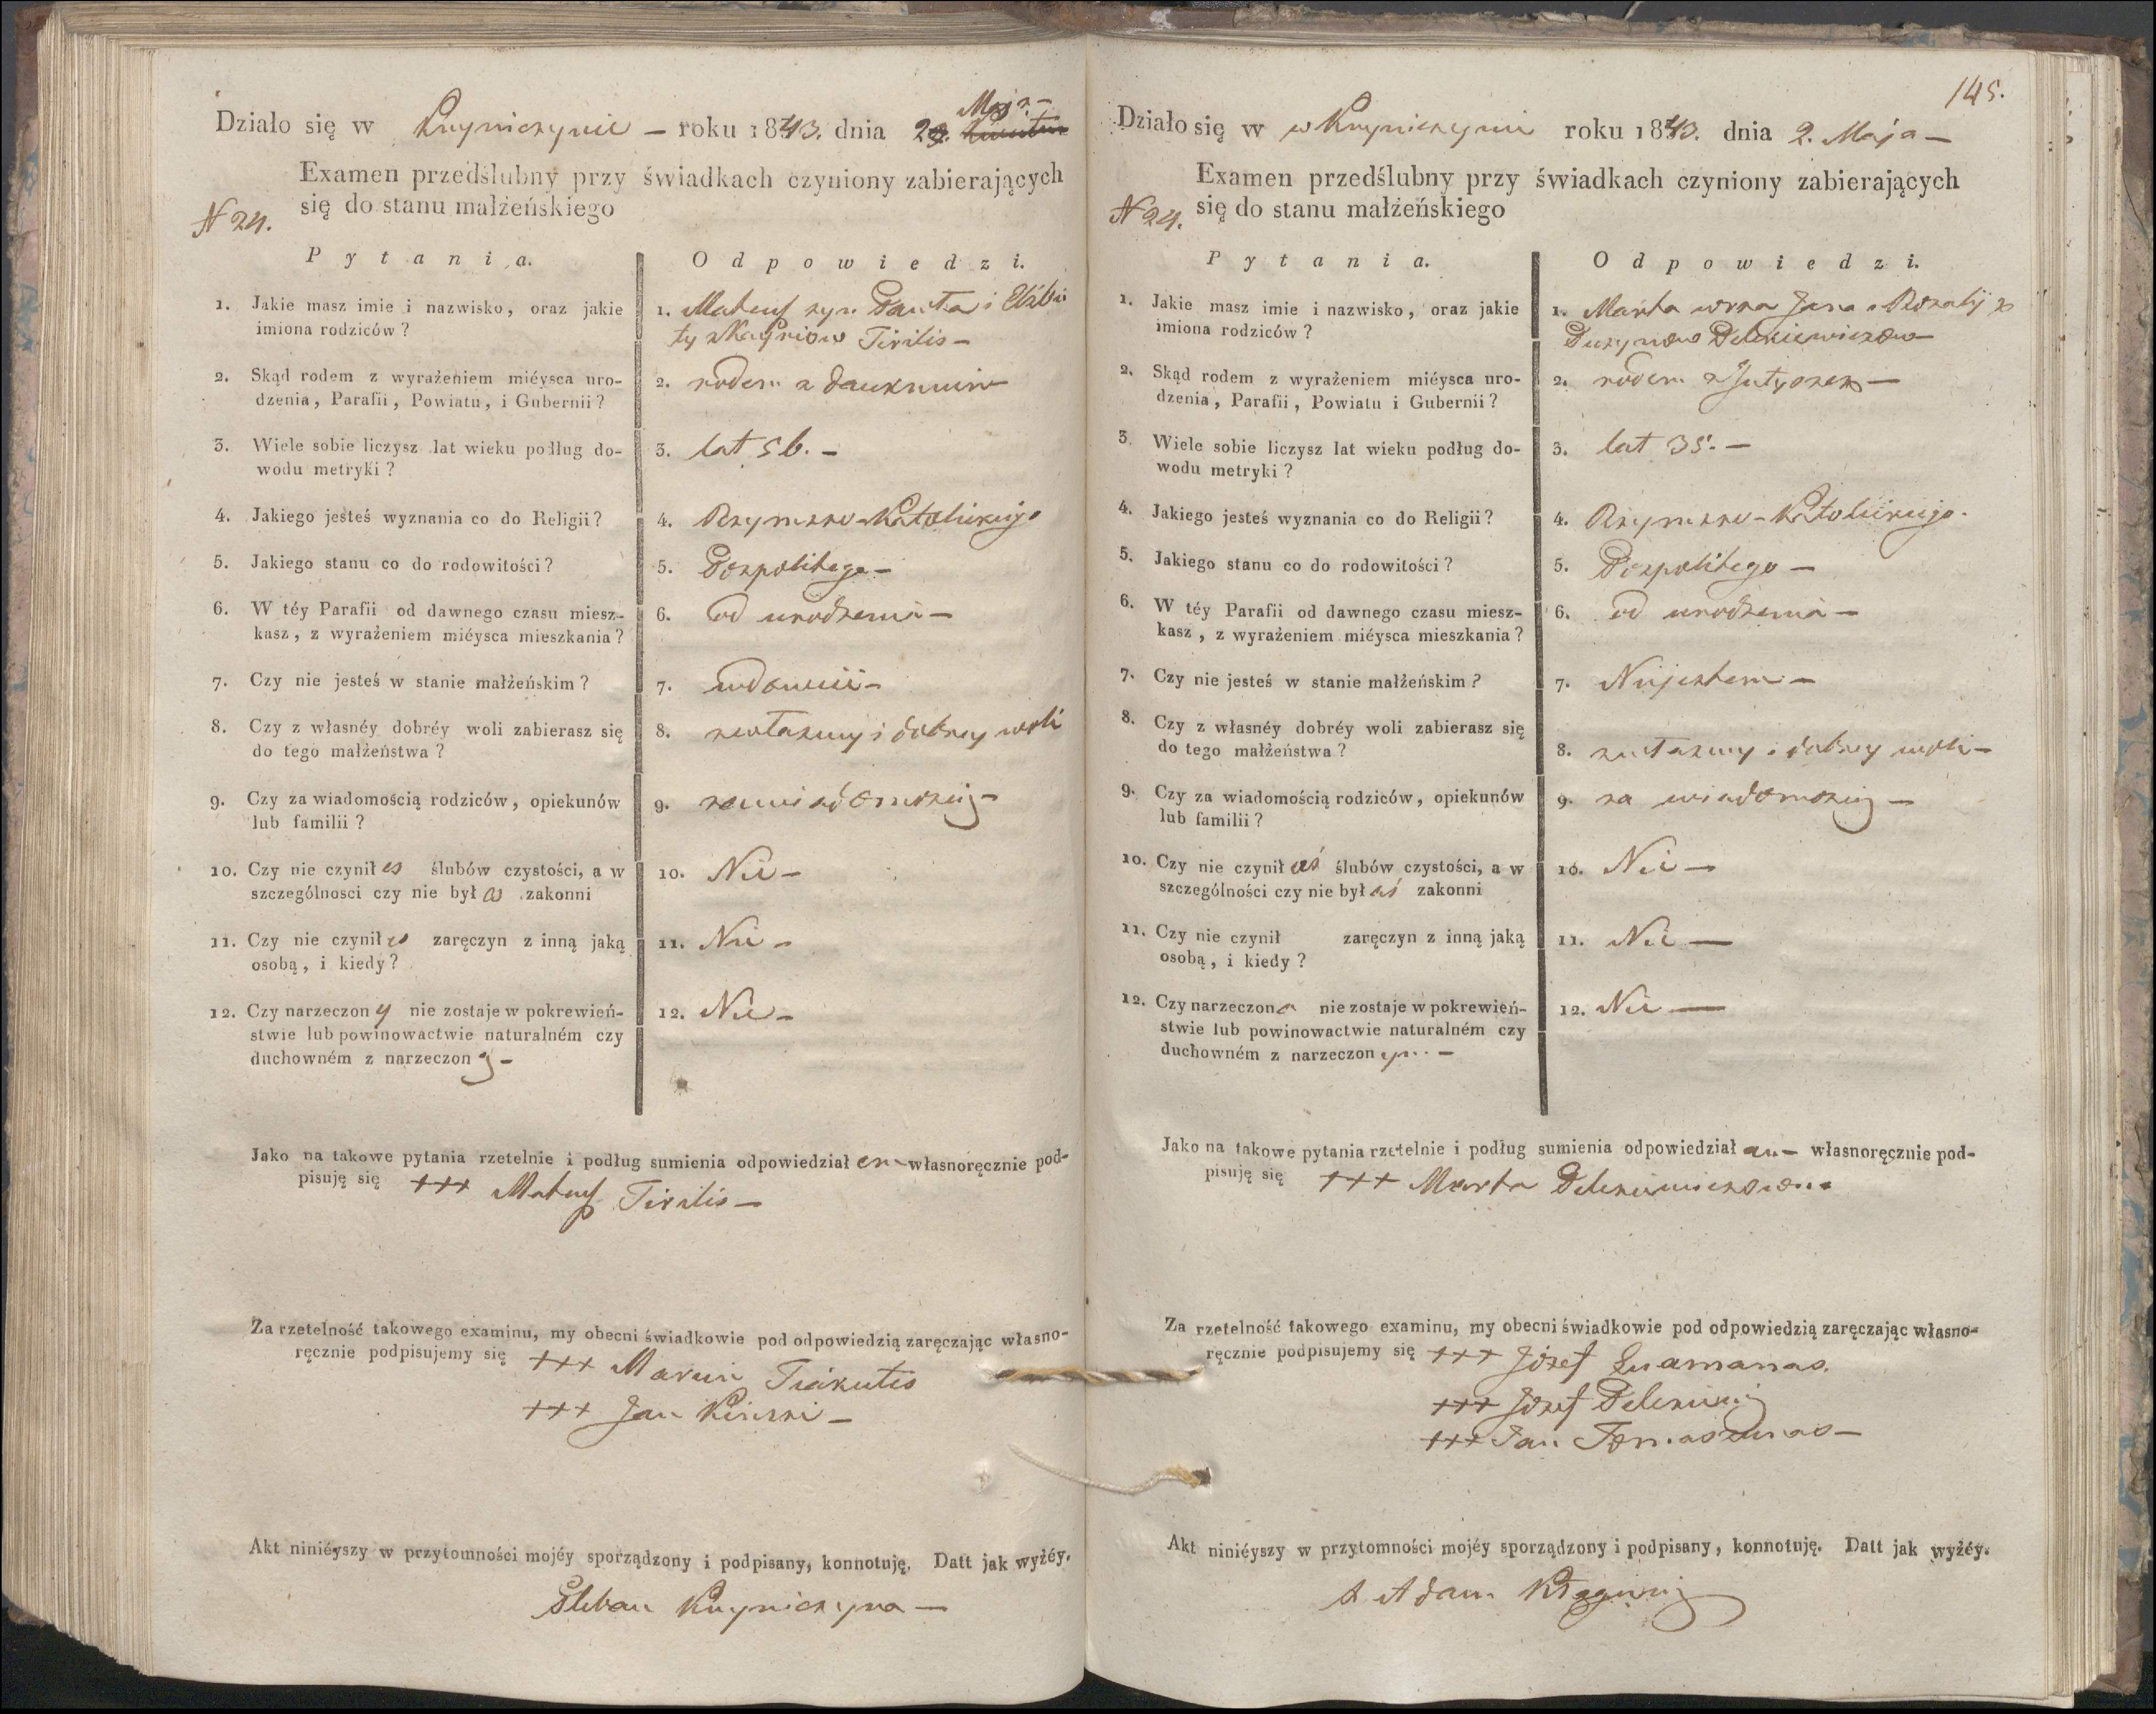 Działo się w Knyniczynie – roku 1843. dnia 2. Maja –
Examen przedślubny przy świadkach czyniony zabierających
się do stanu małżeńskiego
N 24.
Pytania. Odpowiedzi.
1. Jakie masz imie i nazwisko, oraz jakie
imiona rodziców?
1. Mateusz syn i Elżbie
ty Tirilis –
2. Skąd rodem z wyrażeniem miéysca uro-
dzenia, Parafii, Powiatu, i Gubernii?
2. rodem z
3. Wiele sobie liczysz lat wieku podług do-
wodu metryki?
3. lat 56. –
4. Jakiego jesteś wyznania co do Religii?
4. Rzymsko-Katolickiego
5. Jakiego stanu co do rodowitości?
5. Pospolitego –
6. W téy Parafii od dawnego czasu miesz-
kasz, z wyrażeniem miéysca mieszkania?
6. od urodzenia –
7. Czy nie jesteś w stanie małżeńskim?
7. wdowiec –
8. Czy z własnéy dobréy woli zabierasz się
do tego małżeństwa?
8. zwłasney i dobrey woli
9. Czy za wiadomością rodziców, opiekunów
lub familii?
9. zawiadomością –
10. Czy nie czynił eś ślubów czystości, a w
szczególnosci czy nie był eś zakonni
10. Nie –
11. Czy nie czynił eś zaręczyn z inną jaką
osobą, i kiedy?
11. Nie –
12. Czy narzeczon y nie zostaje w pokrewień-
stwie lub powinowactwie naturalném czy
duchowném z narzeczon ą –
12. Nie –
Jako na takowe pytania rzetelnie i podług sumienia odpowiedział em – własnoręcznie pod-
pisuję się +++ Mateusz Tirilis –
Za rzetelność takowego examinu, my obecni świadkowie pod odpowiedzią zaręczając własno-
ręcznie podpisujemy się +++ Marcin
+++ Jan
Akt niniéyszy w przytomności mojéy sporządzony i podpisany, konnotuję. Datt jak wyżéy.
Pleban Knyniczyna –
145.
Działo się w w Knyniczynie roku 1843. dnia 2. Maja –
Examen przedślubny przy świadkach czyniony zabierających
się do stanu małżeńskiego
N 24.
Pytania. Odpowiedzi.
1. Jakie masz imie i nazwisko, oraz jakie
imiona rodziców?
1. Marta córka Jana i Rozalij z
2. Skąd rodem z wyrażeniem miéysca uro-
dzenia, Parafii, Powiatu i Gubernii?
2. rodem z
3. Wiele sobie liczysz lat wieku podług do-
wodu metryki?
3. lat 35. –
4. Jakiego jesteś wyznania co do Religii?
4. Rzymsko-Katolickiego.
5. Jakiego stanu co do rodowitości?
5. Pospolitego –
6. W téy Parafii od dawnego czasu miesz-
kasz, z wyrażeniem miéysca mieszkania?
6. od urodzenia –
7. Czy nie jesteś w stanie małżeńskim?
7. Niejestem –
8. Czy z własnéy dobréy woli zabierasz się
do tego małżeństwa?
8. zwłasney i dobrey woli –
9. Czy za wiadomością rodziców, opiekunów
lub familii?
9. za wiadomością –
10. Czy nie czynił aś ślubów czystości, a w
szczególności czy nie był aś zakonni
10. Nie –
11. Czy nie czynił zaręczyn z inną jaką
osobą, i kiedy?
11. Nie –
12. Czy narzeczon a nie zostaje w pokrewień-
stwie lub powinowactwie naturalném czy
duchowném z narzeczon ym –
12. Nie –
Jako na takowe pytania rzetelnie i podług sumienia odpowiedział am – własnoręcznie pod-
pisuję się +++ Marta
Za rzetelność takowego examinu, my obecni świadkowie pod odpowiedzią zaręczając własno-
ręcznie podpisujemy się +++ Józef
+++ Józef
+++ Jan Tomaszunas –
Akt niniéyszy w przytomności mojéy sporządzony i podpisany, konnotuję. Datt jak wyżéy.
Adam